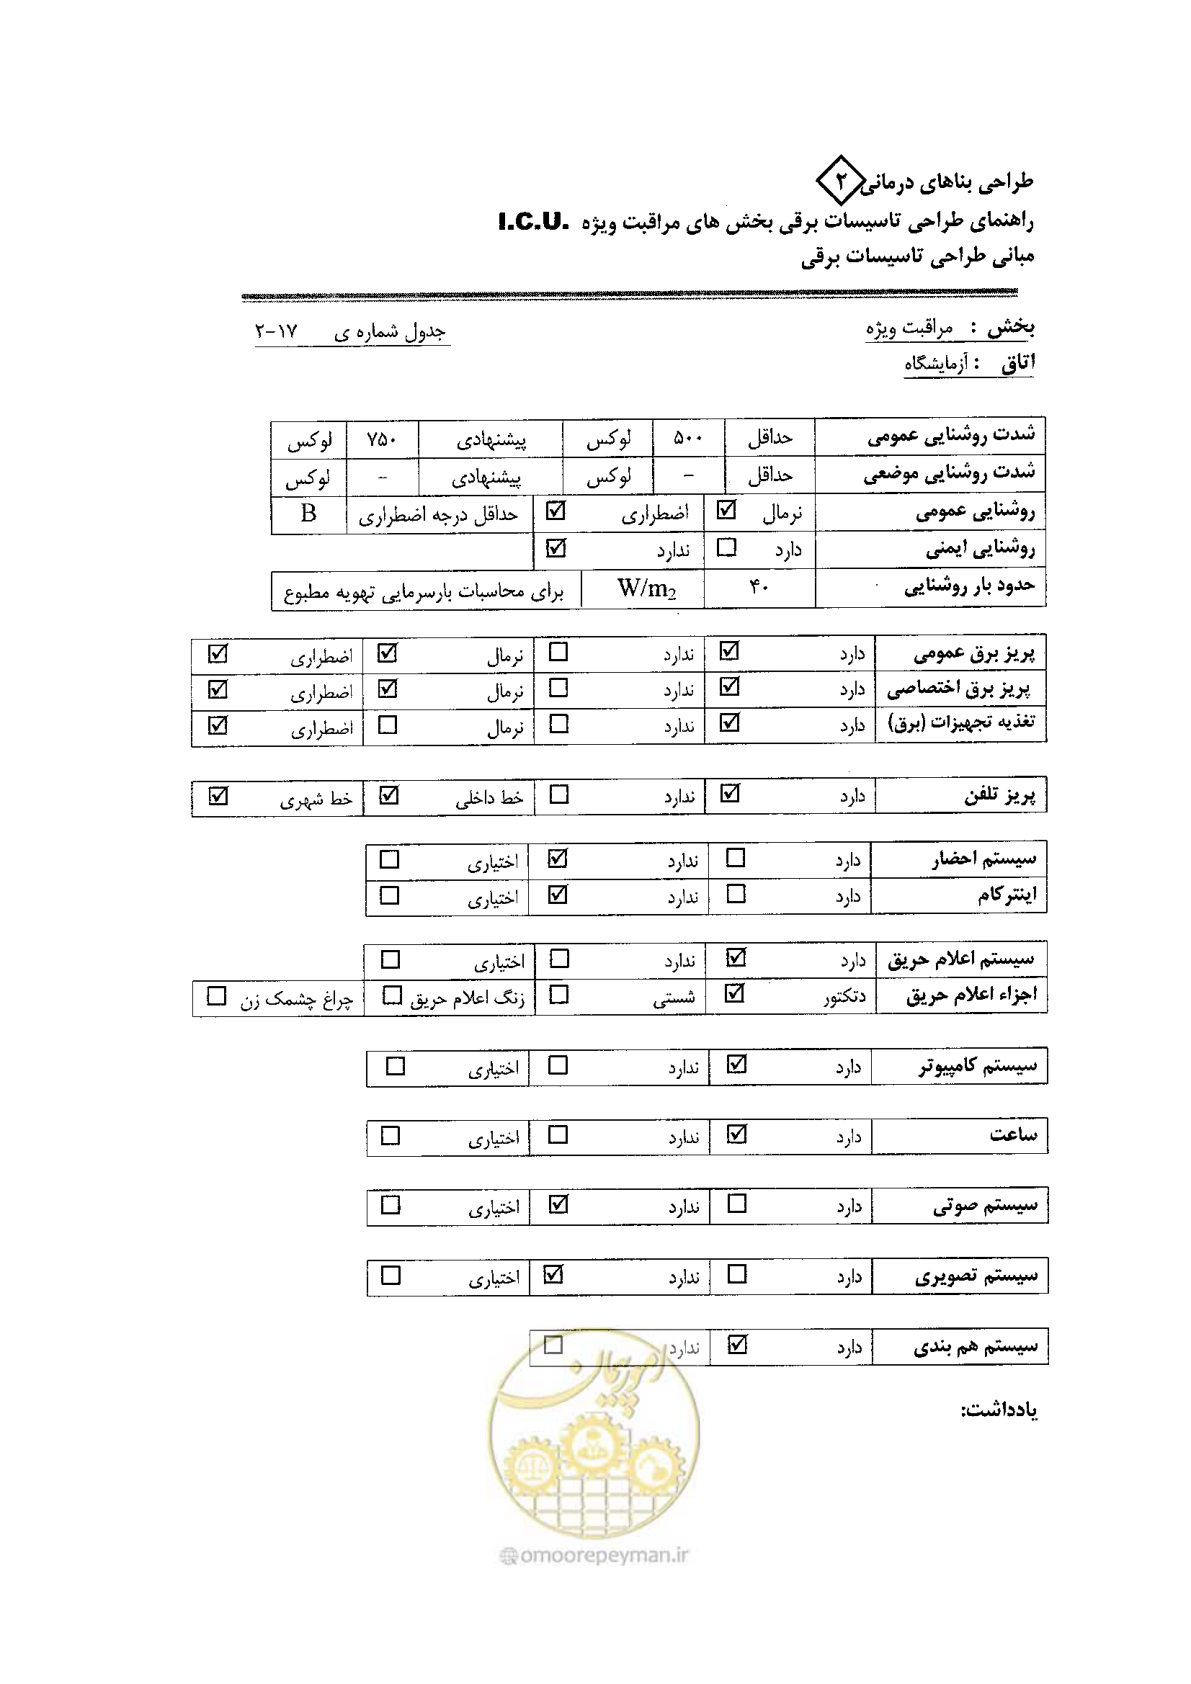 طراحی بناهای درمانی ۲
راهنمای طراحی تاسیسات برقی بخش های مراقبت ویژه I.C.U.
مبانی طراحی تاسیسات برقی
بخش : مراقبت ویژه جدول شماره ی ۱۷-۲
اتاق : آزمایشگاه
شدت روشنایی عمومی حداقل ۵۰۰ لوکس پیشنهادی ۷۵۰ لوکس
شدت روشنایی موضعی حداقل – لوکس پیشنهادی -- لوکس
روشنایی عمومی نرمال ☑ اضطراری ☑ حداقل درجه اضطراری B
روشنایی ایمنی دارد ☐ ندارد ☑
حدود بار روشنایی ۴۰ W/m2 برای محاسبات بارسرمایی تهویه مطبوع
پریز برق عمومی دارد ☑ ندارد ☐ نرمال ☑ اضطراری ☑
پریز برق اختصاصی دارد ☑ ندارد ☐ نرمال ☑ اضطراری ☑
تغذیه تجهیزات (برق) دارد ☑ ندارد ☐ نرمال ☐ اضطراری ☑
پریز تلفن دارد ☑ ندارد ☐ خط داخلی ☑ خط شهری ☑
سیستم احضار دارد ☐ ندارد ☑ اختیاری ☐
اینترکام دارد ☐ ندارد ☑ اختیاری ☐
سیستم اعلام حریق دارد ☑ ندارد ☐ اختیاری ☐
اجزاء اعلام حریق دتکتور ☑ شستی ☐ زنگ اعلام حریق ☐ چراغ چشمک زن ☐
سیستم کامپیوتر دارد ☑ ندارد ☐ اختیاری ☐
ساعت دارد ☑ ندارد ☐ اختیاری ☐
سیستم صوتی دارد ☐ ندارد ☑ اختیاری ☐
سیستم تصویری دارد ☐ ندارد ☑ اختیاری ☐
سیستم هم بندی دارد ☑ ندارد ☐
یادداشت:
امور پیمان
@omoorepeyman.ir